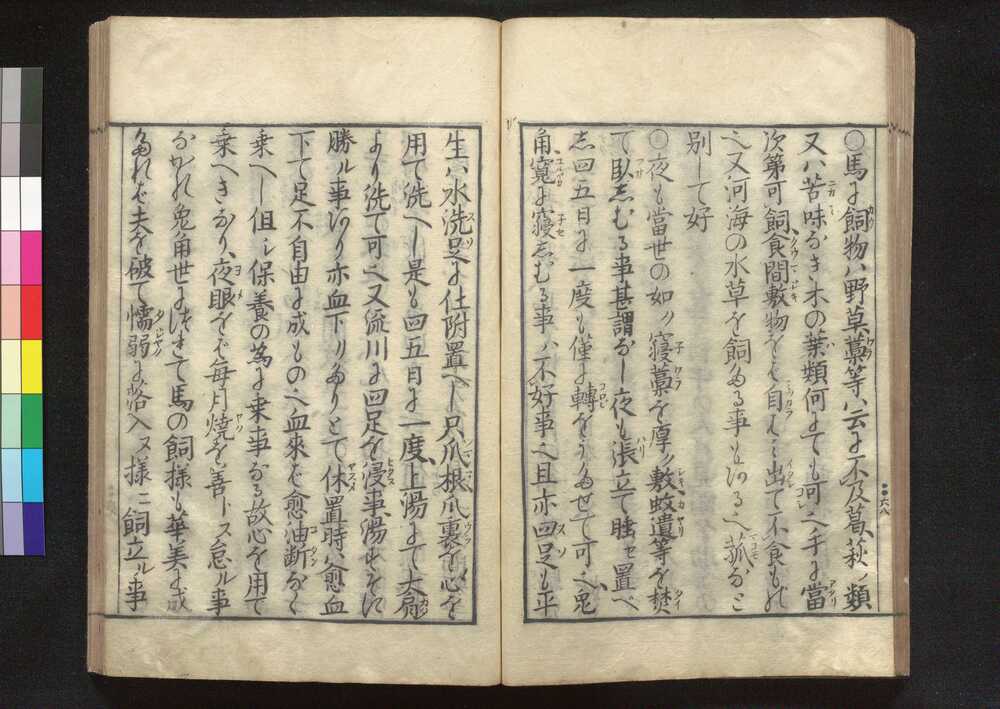 ○馬に飼物ハ野草藁等ハ云に不及葛萩ノ類
又ハ苦味なき木の葉類何にても可ヘ手に當
次第可飼食間敷物をも自ら出て不食もの
也又河海の水草を飼ふる事も有るへ菰など
別して好
○夜も當世の如ク寝藁を厚ク敷蚊遣等を焚
て臥しむる事甚謂なし夜も張立て睡セ置ヘ
し四五日に一度も僅に轉をうたせて可也兎
角寛に寝しむる事ハ不好事也且亦四足も平
生ハ水洗足に仕附置ヘし只爪根爪裏を心を
用て洗ヘし是も四五日に一度上湯にて大盥
より洗て可也又流川に四足を浸事湯せそに
勝ル事有り亦血下リたりとて休置時ハ愈血
下て足不自由に成もの也血來を愈油断なく
乗ヘし但シ保養の為に乗事なる故心を用て
乗ヘきなり夜眼をば毎月焼を善トス怠ル事
なかれ兎角世にはまて馬の飼様も華美に成
たれば夫を破て懦弱に陷入ヌ様ニ飼立ル事
六八